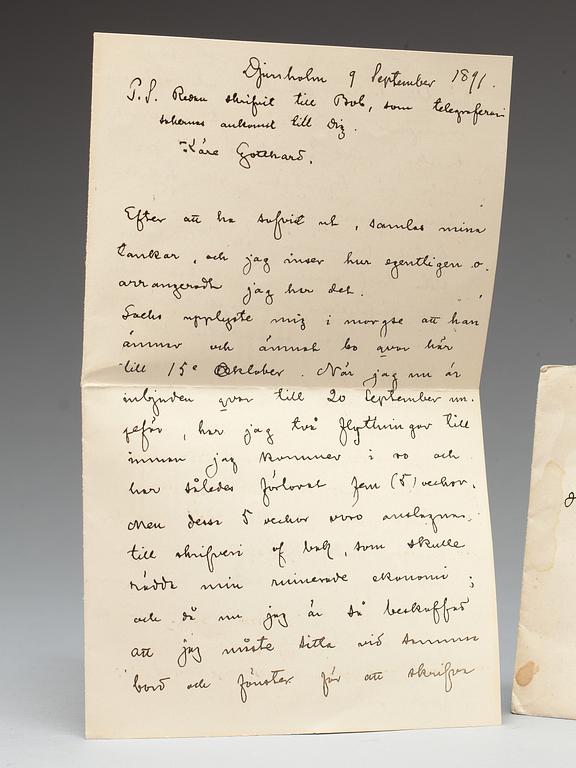 Djursholm 9 September 1891.
P.S. Redan skrifvit till Bob, som telegraferar
sakernas ankomst till Dig.
Käre Gotthard,
Efter att ha sofvit ut, samlas mina
tankar, och jag inser hur egentligen o-
arrangeradt jag har det.
Sachs upplyste mig i morgse att han
ämnar och ämnat bo qvar här
till 15e Oktober. När jag nu är
inbjuden qvar till 20 September un-
gefär, har jag två flyttningar till
innan jag kommer i ro och
har således förlorat fem (5) veckor.
Men dessa 5 veckor voro anslagna
till skrifveri af bok, som skulle
rädda min ruinerade ekonomi;
och då nu jag är så beskaffad
att jag måste sitta vid samma
bord och fönster för att skrifva